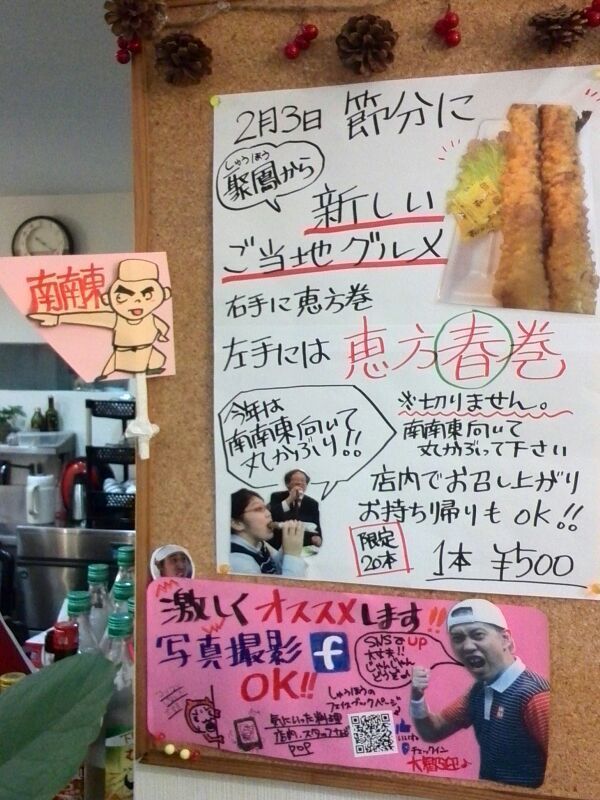 2月3日 節分に
しゅうほう
聚鳳から
新しい
ご当地グルメ
右手に恵方巻
左手には 恵方春巻
※切りません。
南南東向いて
丸かぶって下さい
今年は
南南東向いて
丸かぶり!!
店内でお召し上がり
お持ち帰りも OK!!
限定
20本
1本 ¥500
南南東
激しくオススメします!!
写真撮影 f
OK!!
SNSでUP
大丈夫!!
じゃんじゃん
どうぞ♪
しゅうほうの
フェイスブックページ♪
気にいった料理
店内、スタッフさんを
POP
いいね
チェックイン